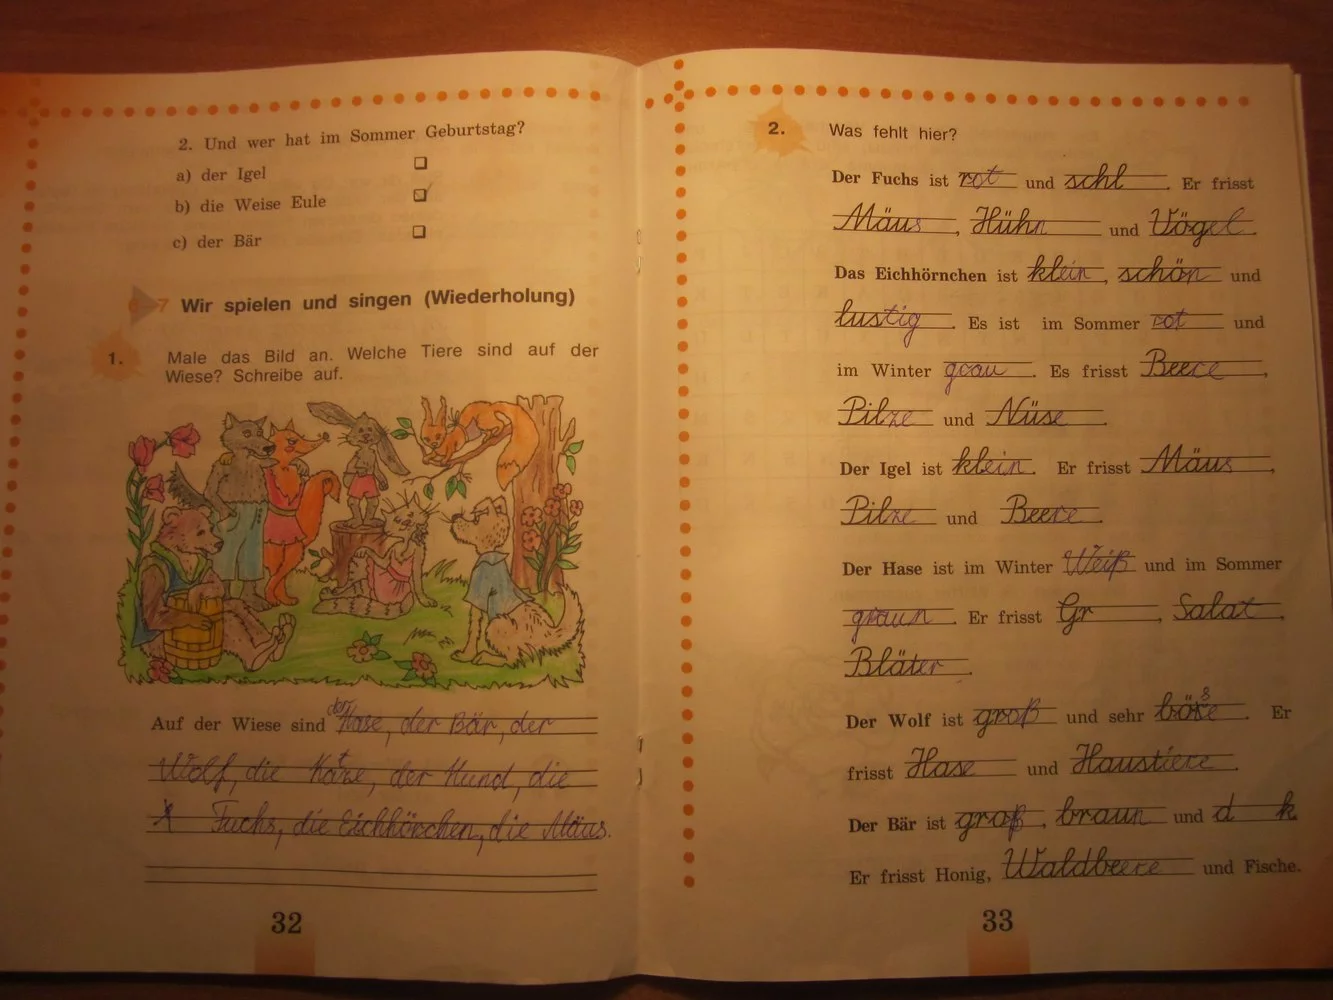 2. Und wer hat im Sommer Geburtstag?
a) der Igel
b) die Weise Eule
c) der Bär
7 Wir spielen und singen (Wiederholung)
1. Male das Bild an. Welche Tiere sind auf der
Wiese? Schreibe auf.
Auf der Wiese sind der Hase, der Bär, der
Wolf, die Katze, der Hund, die
Fuchs, die Eichhörchen, die Mäus.
32
2. Was fehlt hier?
Der Fuchs ist rot und schl . Er frisst
Mäus , Hühn und Vögel .
Das Eichhörnchen ist klein , schön und
lustig . Es ist im Sommer rot und
im Winter grau . Es frisst Beere ,
Pilze und Nüse .
Der Igel ist klein . Er frisst Mäus ,
Pilze und Beere .
Der Hase ist im Winter Weiß und im Sommer
graun . Er frisst Gr , Salat ,
Bläter .
Der Wolf ist groß und sehr böse . Er
frisst Hase und Haustiere .
Der Bär ist groß , braun und d k
Er frisst Honig, Waldbeere und Fische.
33